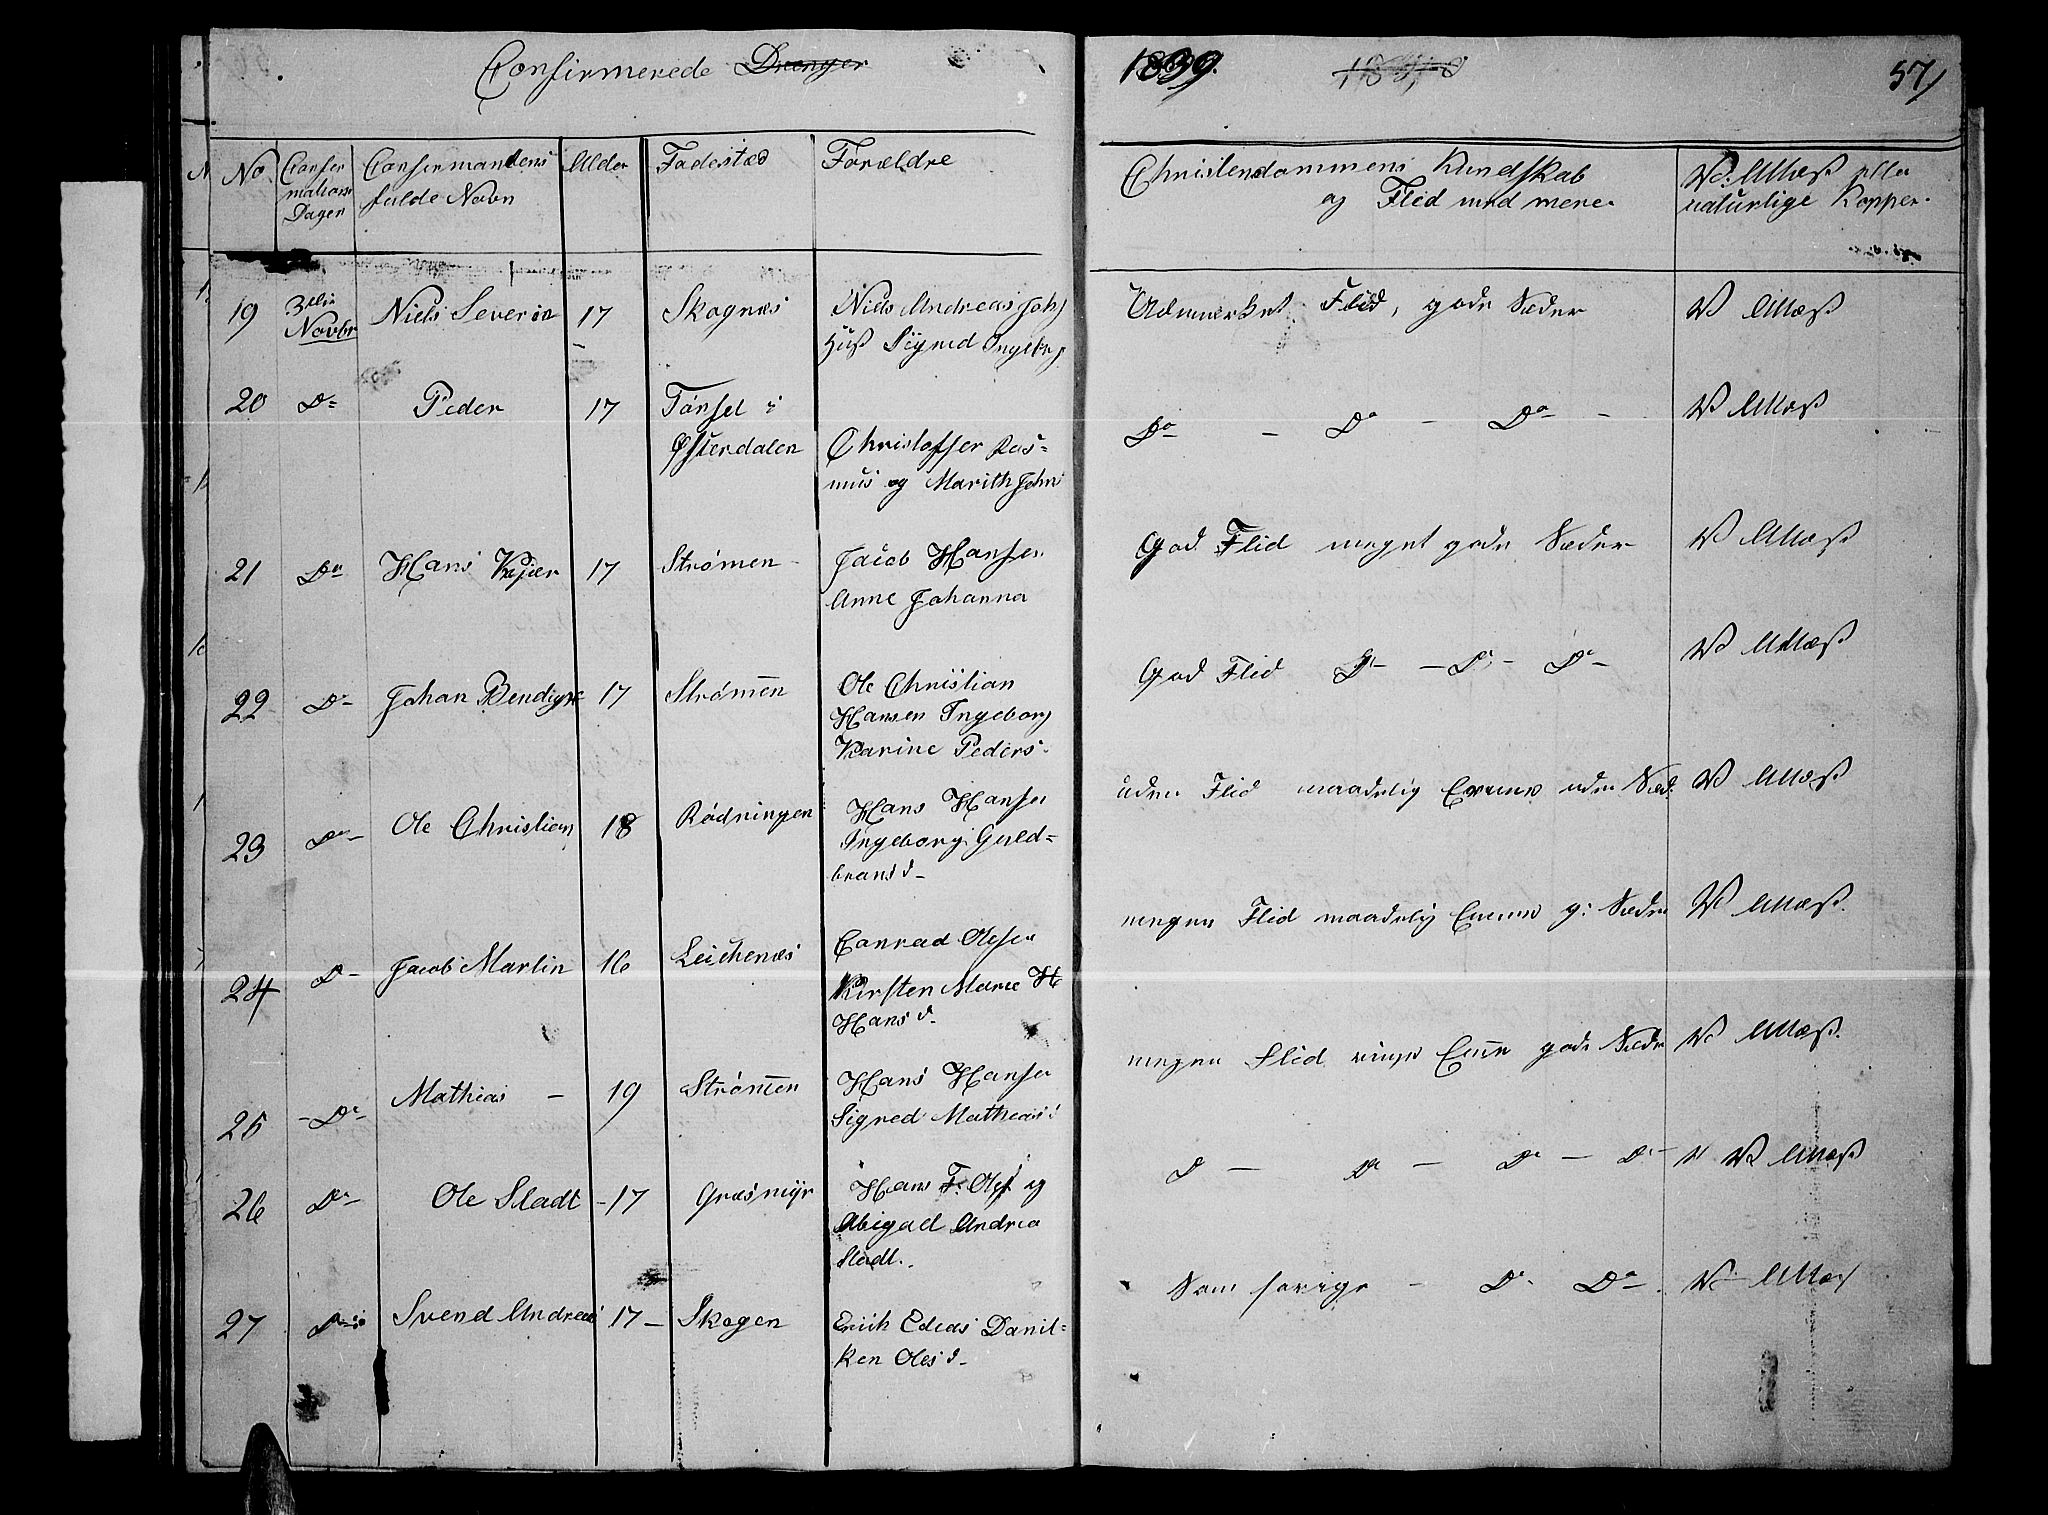 Confirmerede Drenger
1839.
57
No. Confir mations Dagen Confirmandens fulde Navn Alder Fødested Forældre Christendommens Kundskab og Flid med mere V: Attest eller naturlige Kopper.
19 3die Novbr Niels Severin 17 Skognæs Niels Andreas Joh
Sigrid Ingebrj Udmærket Flid, gode Sæder V Attest
20 Do Peder 17 Tønset i
Østerdalen Christoffer Ras=
mus og Marith Johns Do - Do - Do - V Attest
21 Do Hans Kjær 17 Strømen - Jacob Hansen
Anne Johanna God Flid meget gode Sæder V Attest
22 Do Johan Bendigt 17 Strømen Ole Christian
Hansen Ingeborg
Karine Peders. God Flid D - D - Do - V Attest
23 Do Ole Christian 18 Rødningen Hans Hansen
Ingeborg Guld=
brans d - uden Flid maadelig Evene uden Sæd. V Attest
24 D- Jacob Martin 16 Leichenæs Conrad Olsen
Kirsten Marie H
Hans d. megen Flid maadelig Evene g: Sæder V Attest.
25 - Do Mathias - 19 Strømen Hans Hansen
Sigred Mathias d megen Flid Evne gode Sæder V Attest.
26 Do Ole Stadt - 17 Græsmyr Hans F. Ols og
Abigael Andrea
Stadt. D - Do - Do - D - V Attest
27 Do Svend Andreas 17 - Skogen Erich Edeas Danil=
ken Oles d - Som forige - Do Do. V Attest